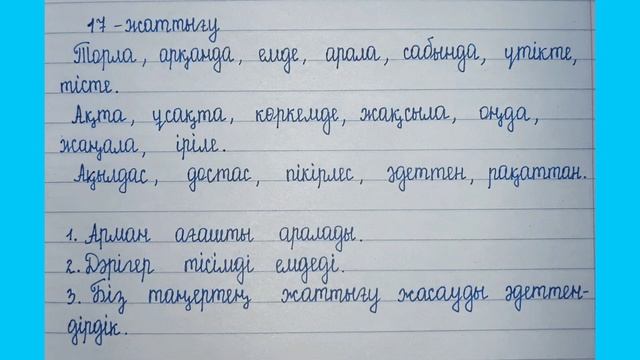 17-жаттығу
Торла, арқанда, емде, арала, сабында, үтікте,
тісте.
Ақта, ұсақта, көркемде, жақсыла, оңда,
жаңала, іріле.
Ақылдас, достас, пікірлес, әдеттен, рақаттан.
1. Арман ағашты аралады.
2. Дәрігер тісімді емдеді.
3. Біз таңертең жаттығу жасауды әдеттен-
дірдік.